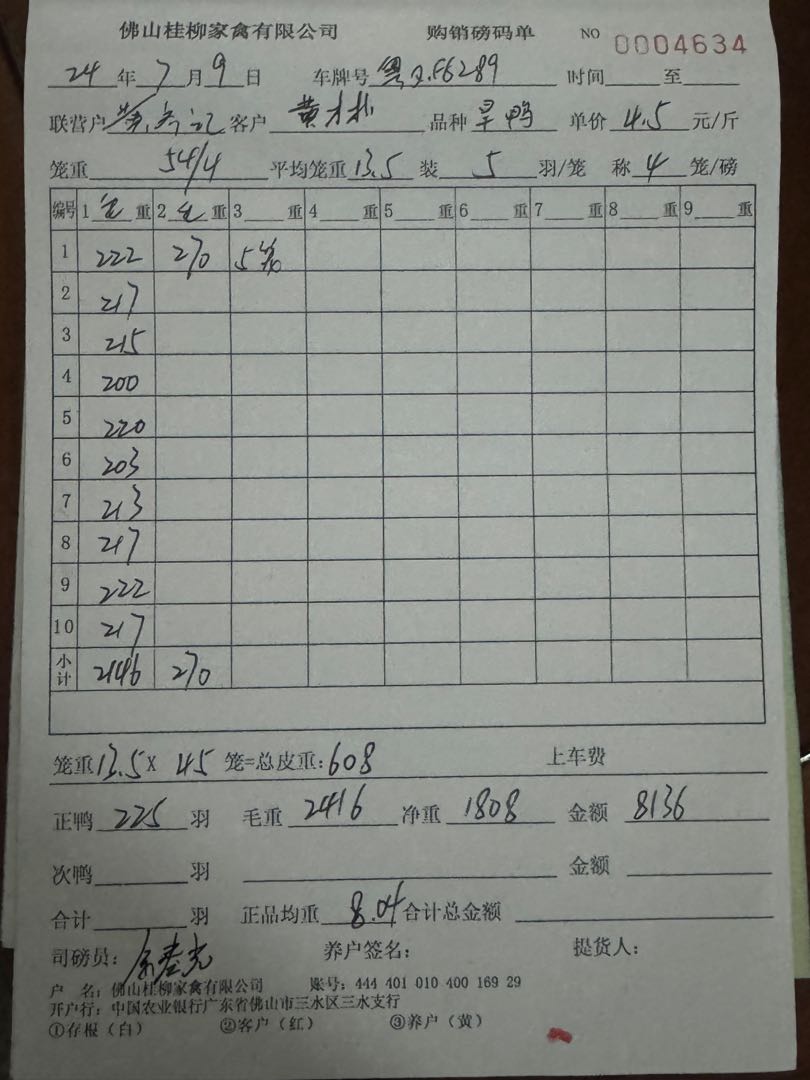 佛山桂柳家禽有限公司 购销磅码单 NO 0004634
24 年 7 月 9 日 车牌号 粤 56289 时间 至
联营户 客户 黄 品种 旱鸭 单价 4.5 元/斤
笼重 54/4 平均笼重 13.5 装 5 羽/笼 称 4 笼/磅
编号 1 毛 重 2 毛 重 3 重 4 重 5 重 6 重 7 重 8 重 9 重
1 222 270 5笼
2 217
3 215
4 200
5 220
6 203
7 213
8 217
9 222
10 217
小计 2146 270
笼重 13.5 X 45 笼=总皮重: 608 上车费
正鸭 225 羽 毛重 2416 净重 1808 金额 8136
次鸭 羽 金额
合计 羽 正品均重 8.04 合计总金额
司磅员: 养户签名: 提货人:
户 名: 佛山桂柳家禽有限公司 账号: 444 401 010 400 169 29
开户行: 中国农业银行广东省佛山市三水区三水支行
①存根(白) ②客户(红) ③养户(黄)